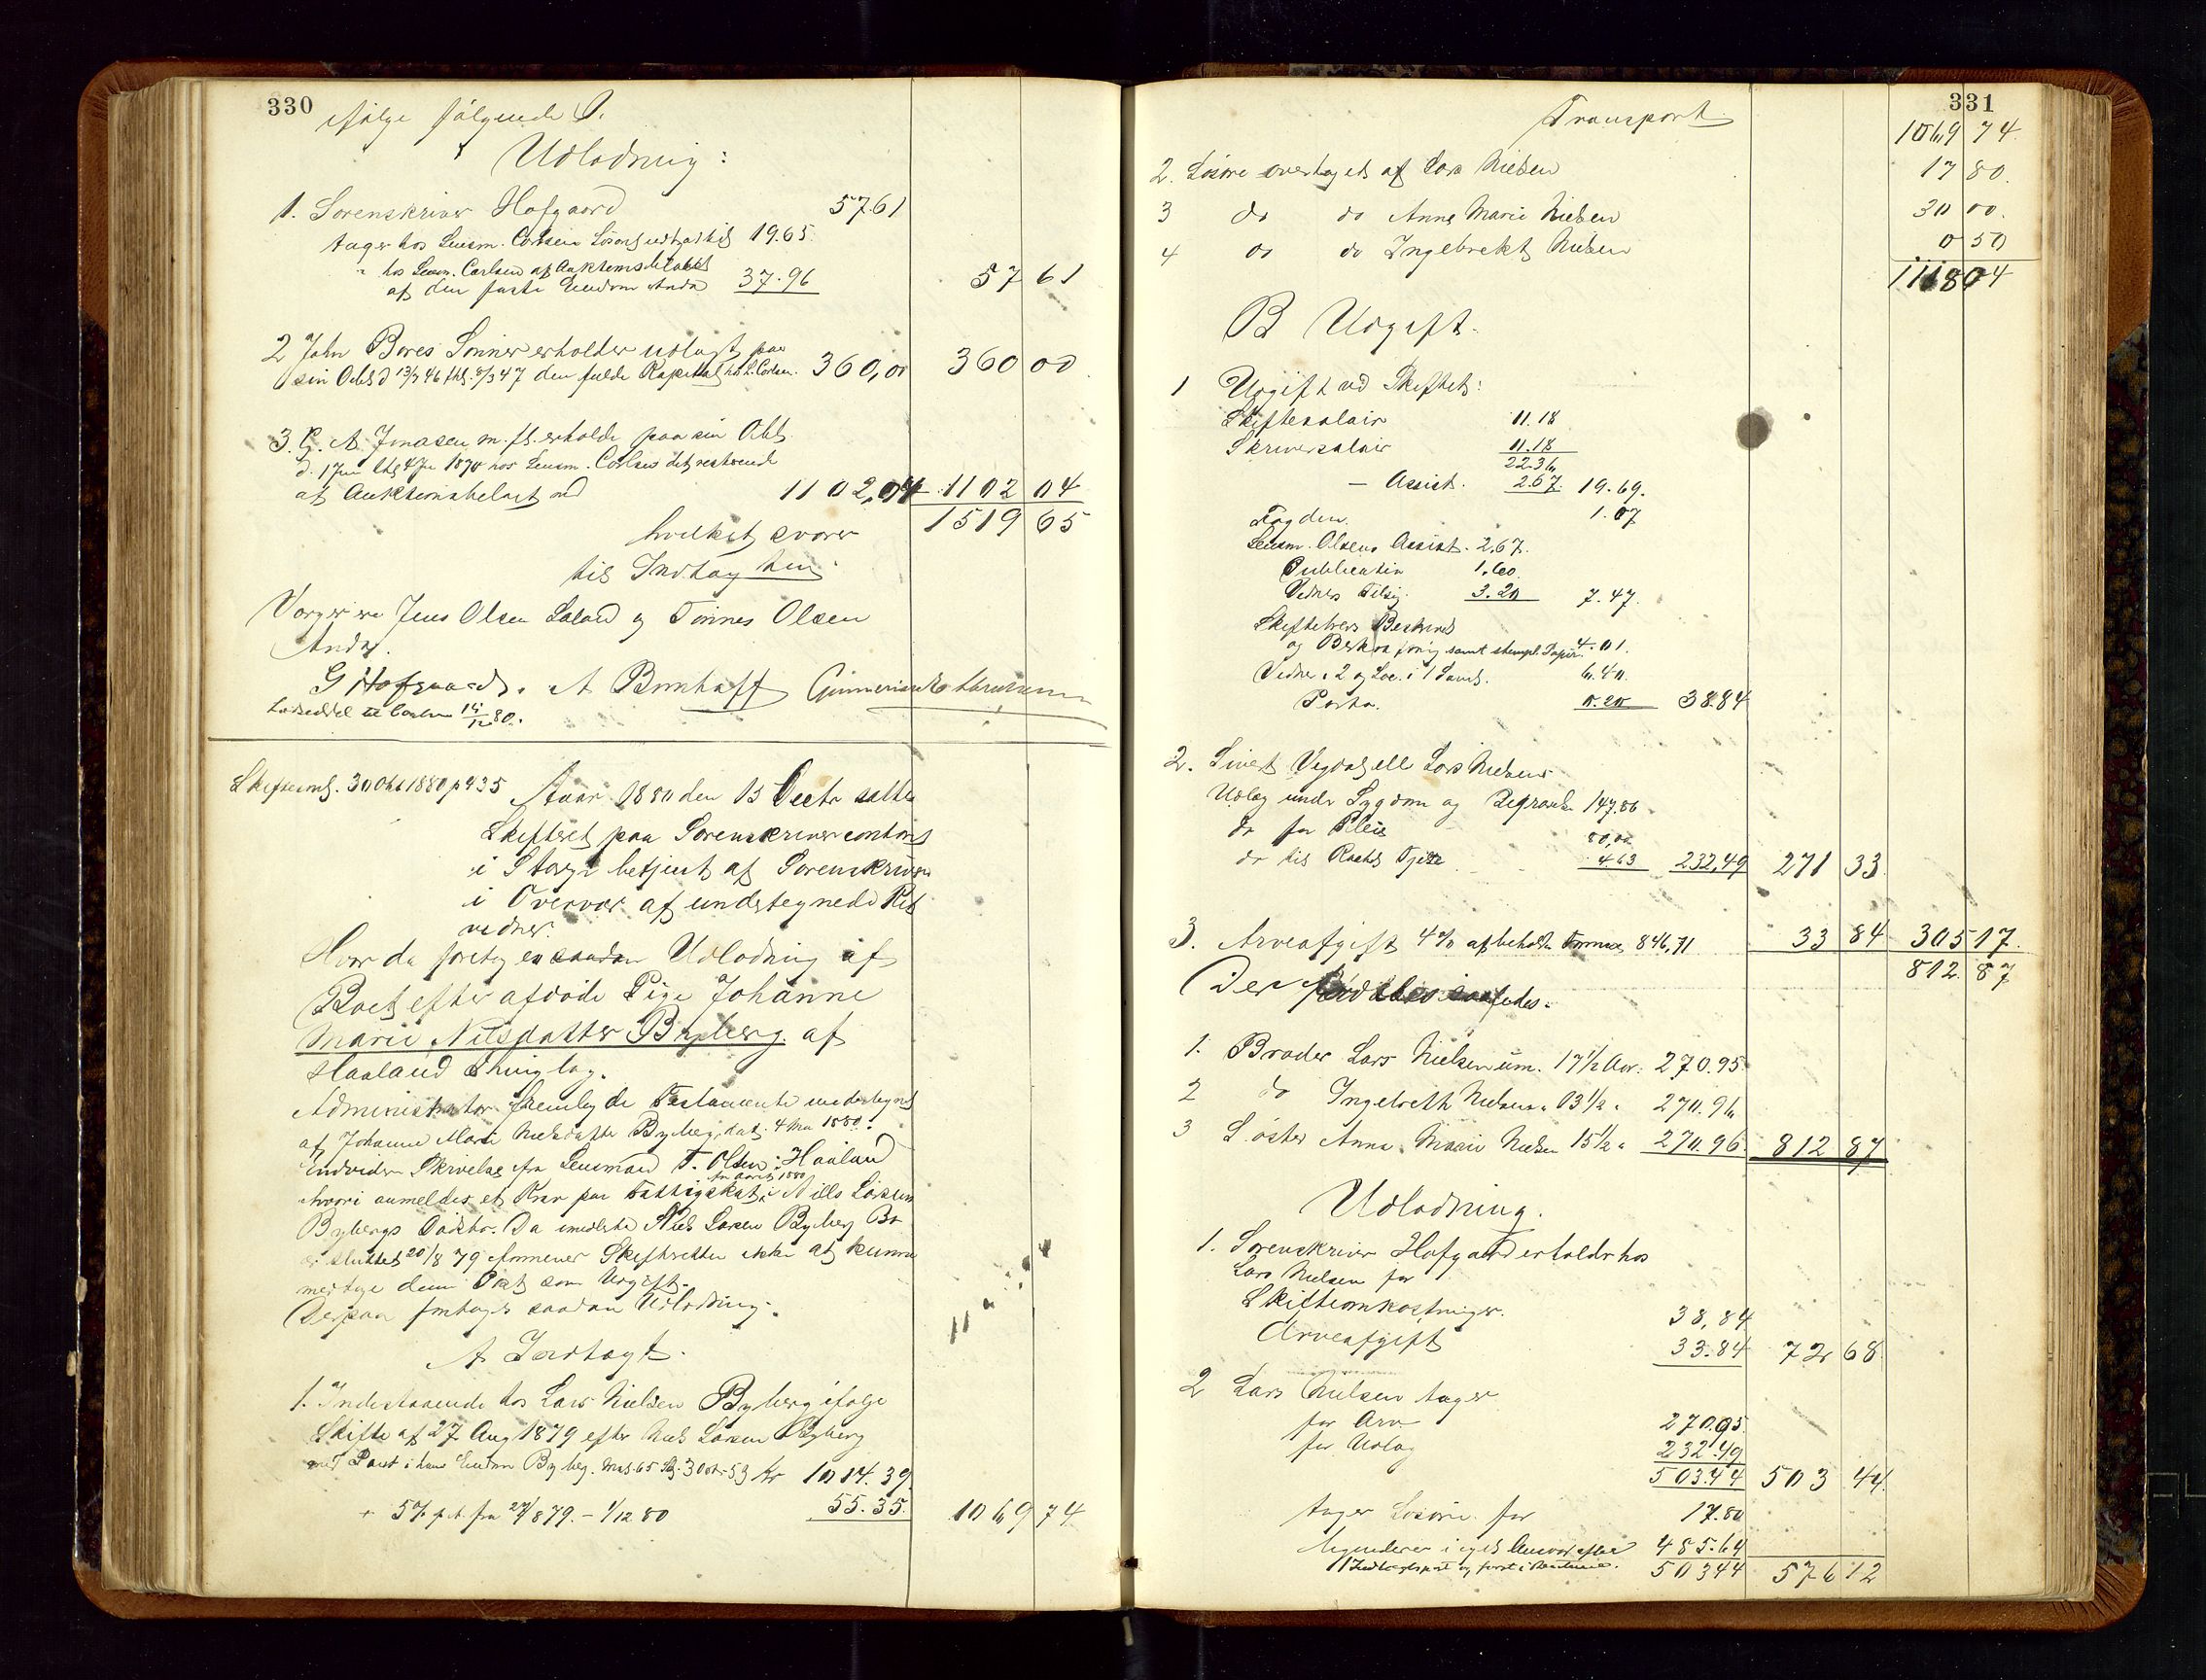 330
ifølge følgende
Udlodning:
1. Sorenskriver Hofgaard 57.61
tager hos Lensm. Carlsen Løsøre 19.65
" hos Lensm. Carlsen af Auktionsbeløbet
af den faste Eiendom Anda 37.96 57 61
2 John Bores Sønner erholder udlagt paa
sin Obl. d 13/3 46 thl. 8/3 47 den fulde Kapital hos L. Carlsen. 360,00 360 00
3. G. A. Jonasen m. fl. erholde paa sin Obl.
d. 1 Juni thl. 4 Ju 1870 hos Lensm. Carlsen det resterende
af Auktionsbeløbet med 1102,04 1102 04
1519 65
hvilket svarer
til Indtægten.
Værger ere Jens Olsen Laland og Tönnes Olsen
Anda.
G Hofgaard. A Bomhoff
Lodseddel til Carlsen 15/12 80.
Skifteanm. 30 Okt 1880 p 435 Aar 1880 den 15 Decbr sattes
Skifteret paa Sorenskrivercontoret
i Stavgr betjent af Sorenskriveren
i Overvær af undertegnede Ret
vidner.
Hvor da foretoges saadan Udlodning af
Boet efter afdøde Pige Johanne
Marie Nilsdatter Byberg af
Haaland Thinglag.
Administrator fremlagde Testamente undertegnet
af Johanne Marie Nielsdatter Byberg, dat. 4 Mai 1880.
endvidere Skrivelse fra Lensmand T. Olsen Haaland
for Aaret 1880
hvori anmeldes et Krav paa Fattigskat i Nills Larsen
Bybergs Dødsbo. Da imidlertid Niels Larsen Byberg Bo
er sluttet 20/8 79 formener Skifteretten ikke at kunne
medtage denne Post som Udgift.
Derpaa foretoges saadan Udlodning.
A Indtægt.
1. Indestaaende hos Lars Nielsen Byberg ifølge
Skifte af 27 Aug 1879 efter Niels Larsen Byberg
med Pant i hans Eiendom Byberg. Mat. 65 Kr 1014.39
+ 5% p.A. fra 27/8 79. – 1/12 80 55.35. 1069 74
331
Transport. 1069 74
2. Løsøre overtaget af Lars Nielsen 17 80.
3 do do Anna Marie Nielsen 30 00.
4 do do Ingebrekt Nielsen 0 50
1118 04
B Udgift.
1 Udgift ved Skiftet:
Skiftesalair 11.18
Skriversalair 11.18
22.36
– Assist. 2.67. 19.69.
Fogden. 1.07
Lensm. Olsens Assist. 2.67.
Publication 1.60.
Vidners Tilsig. 3.20 7.47.
Skiftebrevs Beskrivels
og Bekræftning samt stempl. Papir. 4.01.
Vidner i 2 og Loc. i 1 Saml. 6.40.
Porto. 0.20 38.84
2. Sivert Vigdal ell Lars Nielsens
Udlæg under Sygdom og Begravelse 147.86
do for Pleie 80,00
do til Rachel Tjelta 4.63 232,49 271 33.
3. Arveafgift 4% af beholdt Formue 846,71 33 84 305 17.
812 87
Der fordeles saaledes.
1. Broder Lars Nielsen um. 17½ Aar. 270.95
2 do Ingebreth Nielsen " 13½ " 270.96
3 Søster Anna Marie Nielsen 15½ " 270.96. 812 87
Udlodning.
1. Sorenskriver Hofgaard erholder hos
Lars Nielsen for
Skifteomkostninger. 38,84
Arveafgift 33.84 72 68.
2 Lars Nielsen tager
for Arv 270.95
for Udlæg 232.49
503.44 503 44.
tager Løsøre for 17.80
beholder i eget Ansvar efter 485.64
1 Indtægtspost og først i 503 44 576 12